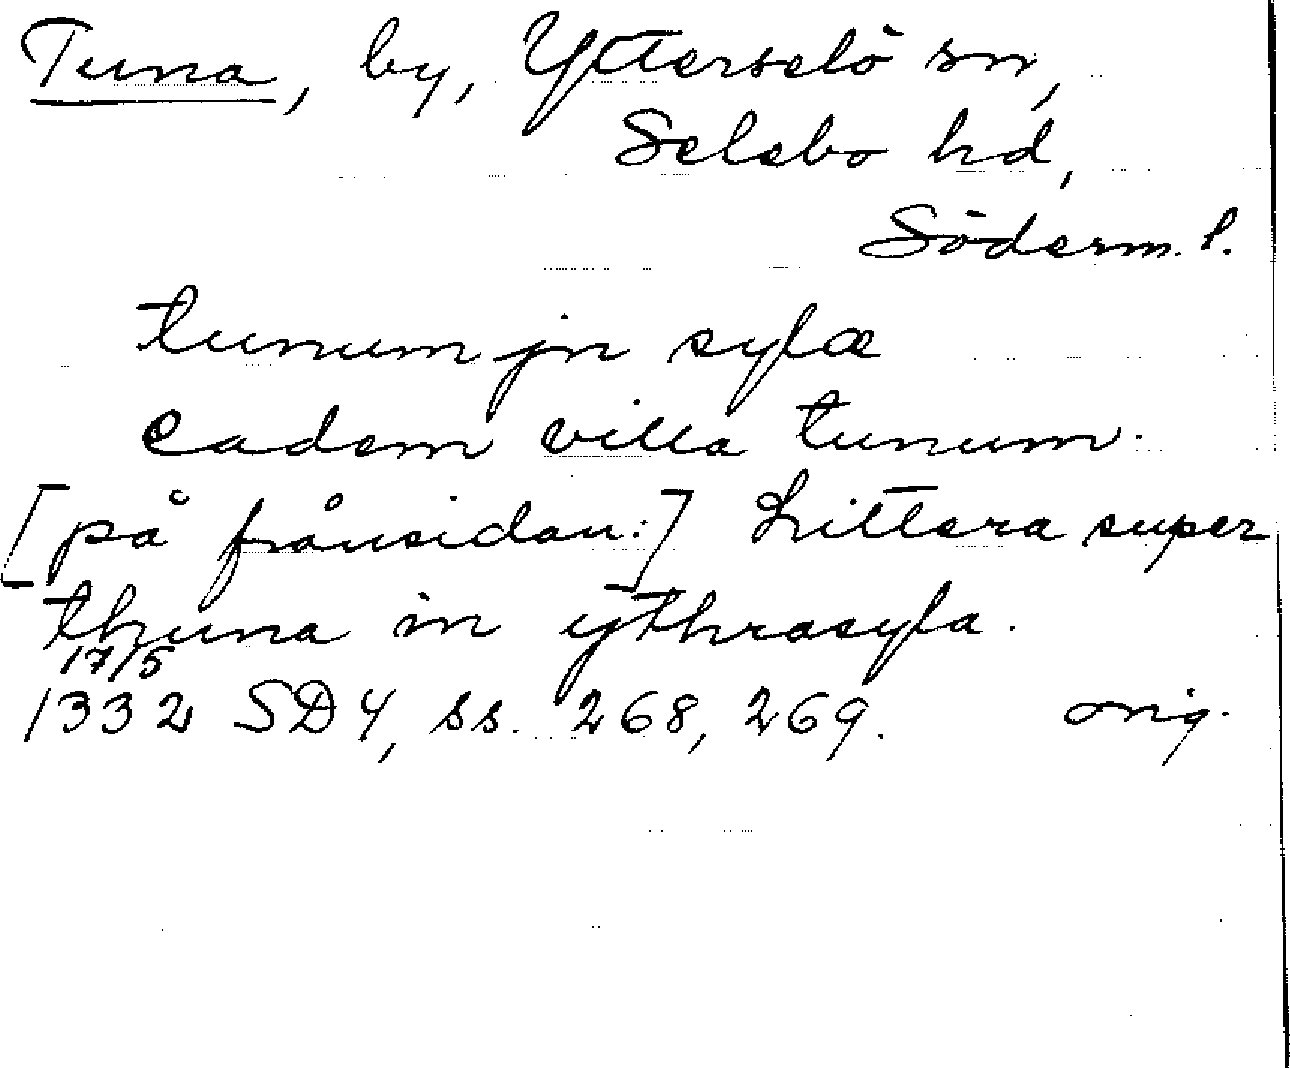 Tuna, by, Ytterselö sn,
Selebo hd,
Söderm. l.
tunum jn syle
eadem villa tunum.
[på frånsidan:] Littera super
thuna in ythrasyla.
17/5
1332 SD 4, ss. 268, 269. orig.